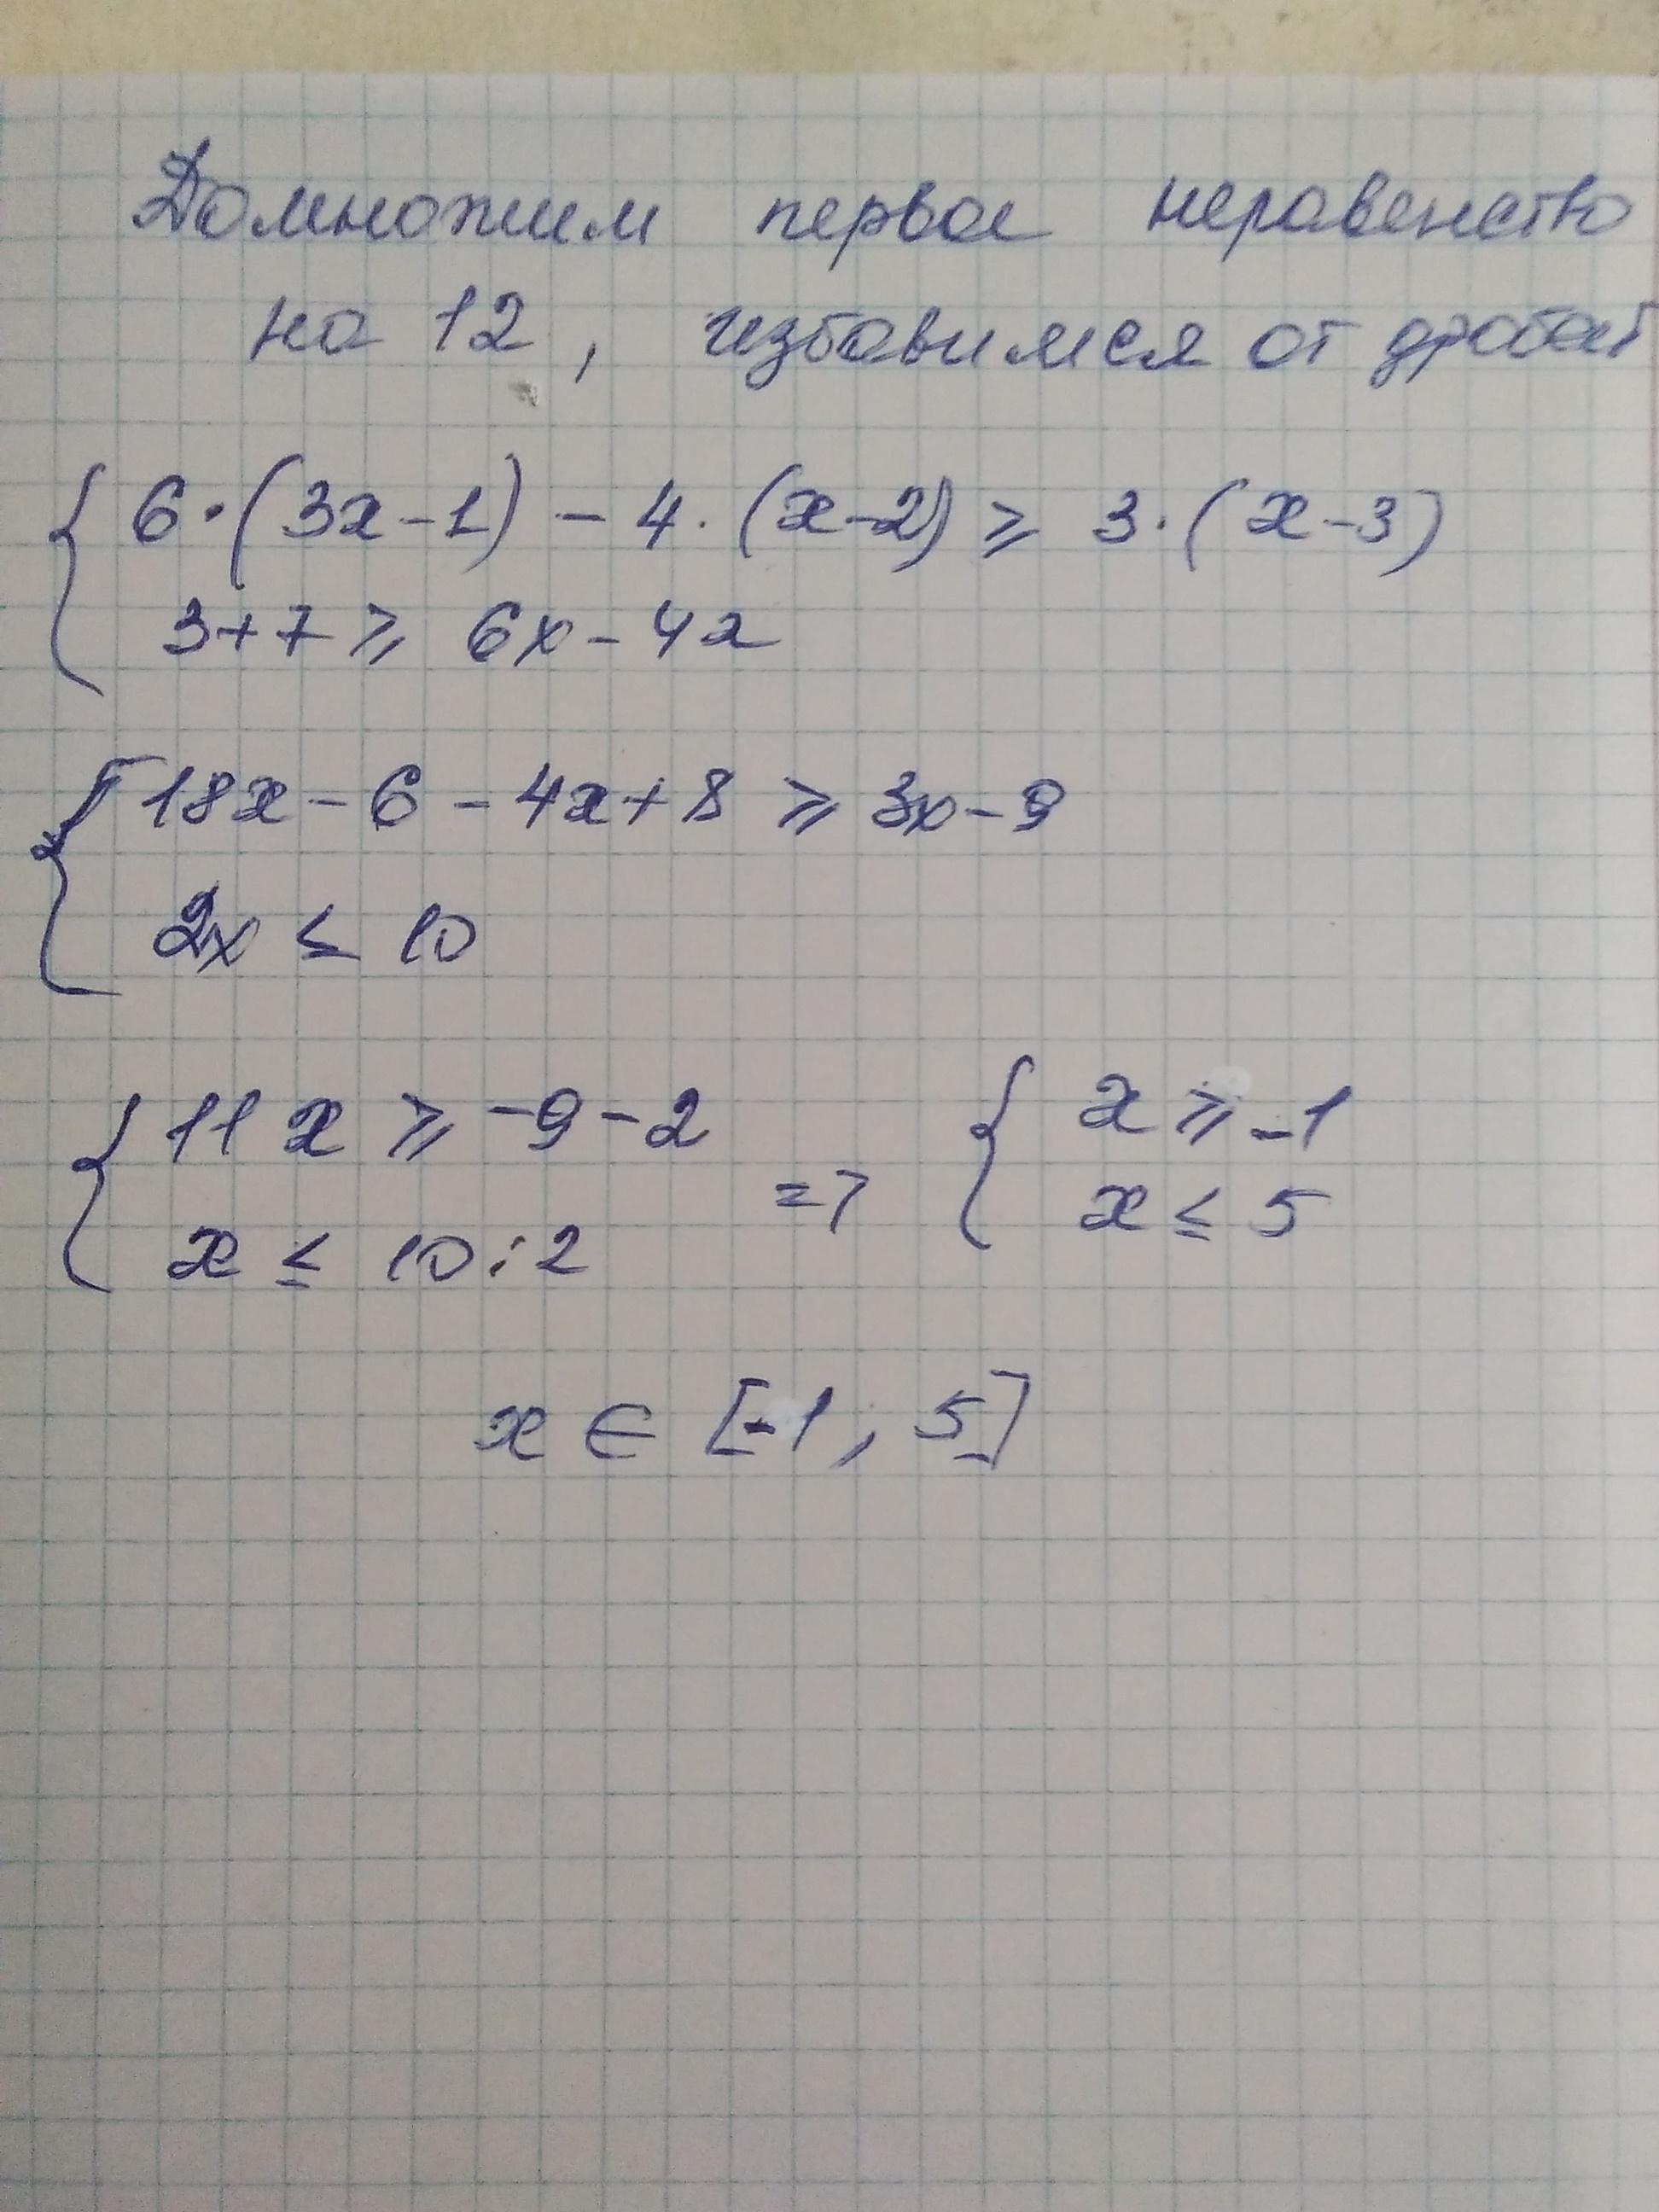 Домножим первое неравенство
на 12, избавимся от дробей
{ 6·(3x-1) - 4·(x-2) ⩾ 3·(x-3)
3+7 ⩾ 6x-4x
{ 18x-6-4x+8 ⩾ 3x-9
2x ≤ 10
{ 11x ⩾ -9-2 => { x ⩾ -1
x ≤ 10:2 x ≤ 5
x ∈ [-1; 5]